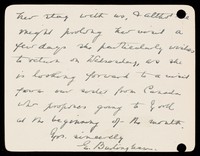 her stay with us, & altho' she
might prolong her visit a
few days she particularly wishes
to return on Wednesday, as she
is looking forward to a visit
from our sister from Canada
who proposes going to
at the beginning of the month.
Yrs. sincerely
E.